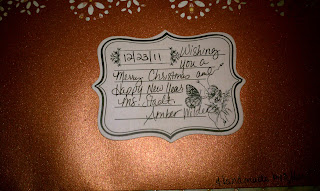 12/23/11 Wishing
you a
Merry Christmas and
Happy New Year
Ms.
Amber
Handmade by